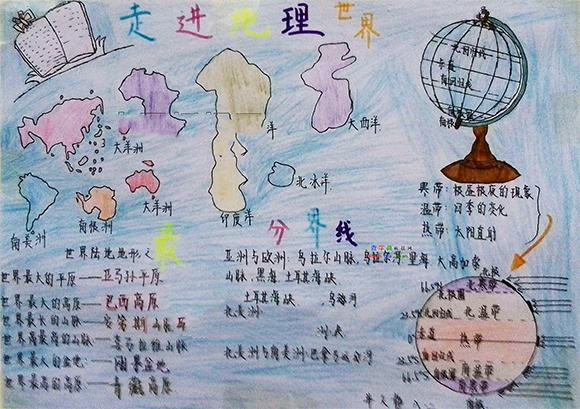 走进地理世界
北回归线
赤道
南回归线
南极
大洋洲
洋
大西洋
大洋洲
南美洲
南极洲
印度洋
北冰洋
寒带:极昼极夜的现象
温带:四季的变化
热带:太阳直射
世界陆地地形之最
世界最大的平原——亚马孙平原
世界最大的高原——巴西高原
世界最长的山脉——安第斯山脉
世界最高最高的山脉——喜马拉雅山脉
世界最大的盆地:——刚果盆地
世界最高的高原——青藏高原
分界线
亚洲与欧洲:乌拉尔山脉,乌拉尔河,里海,大高加索
山脉,黑海,土耳其海峡
土耳其海峡
北美洲
北美洲与南美洲:巴拿马运河
北极
66.5°
北寒带
北极圈
23.5°
北回归线
北温带
赤道
0°
热带
南回归线
23.5°
南温带
66.5°
南寒带